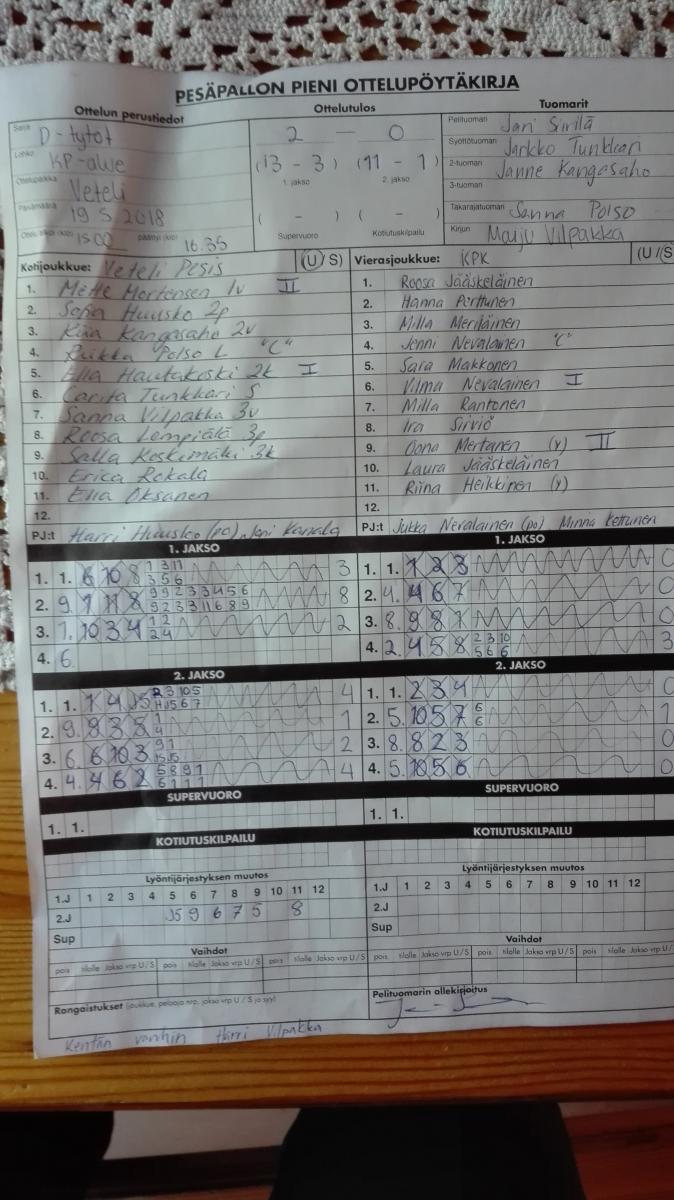 PESÄPALLON PIENI OTTELUPÖYTÄKIRJA
Ottelun perustiedot Ottelutulos Tuomarit
Sarja D-tytöt
Lohko KP-alue
Ottelupaikka Veteli
Päivämäärä 19.5.2018
Ottelu alkoi (klo) 15.00 päättyi (klo) 16.35
2 — 0
(13 - 3) (11 - 1)
1. jakso 2. jakso
( - ) ( - )
Supervuoro Kotiutuskilpailu
Pelituomari Jari Sirilä
Syöttötuomari Jarkko Tunkkari
2-tuomari Janne Kangasaho
3-tuomari
Takarajatuomari Sanna Polso
Kirjuri Marju Vilpakka
Kotijoukkue: Veteli Pesis (U / S)
1. Mette Mortensen 1v II
2. Sofia Huusko 2p
3. Kiia Kangasaho 2v
4. Riikka Polso L "C"
5. Ella Hautakoski 2k I
6. Carita Tunkkari S
7. Sanna Vilpakka 3v
8. Roosa Lempiälä 3p
9. Salla Koskimäki 3k
10. Erica Rekala
11. Ella Oksanen
12.
PJ:t Harri Huusko (po), Joni Kanala
Vierasjoukkue: KPK (U / S
1. Roosa Jääskeläinen
2. Hanna Perttunen
3. Milla Meriläinen
4. Jenni Nevalainen "C"
5. Sara Makkonen
6. Vilma Nevalainen I
7. Milla Rantonen
8. Ira Sirviö
9. Oona Mertanen (y) II
10. Laura Jääskeläinen
11. Riina Heikkinen (y)
12.
PJ:t Jukka Nevalainen (po) Minna Kettunen
1. JAKSO
1. 1. 6 10 8 1 3 11 3
3 5 6
2. 9. 7 11 8 9 9 2 3 3 4 5 6 8
9 2 3 3 11 6 8 9
3. 7. 10 3 4 1 2 2
2 4
4. 6.
1. JAKSO
1. 1. 1 2 3 0
2. 4. 4 6 7 0
3. 8. 9 8 1 0
4. 2. 4 5 8 2 3 10 3
5 6 6
2. JAKSO
1. 1. 1 4 4
2. 9. 8 3 5 1 1
4
3. 6. 6 10 3 9 1 2
4. 4. 4 6 2 5 8 9 1 4
2. JAKSO
1. 1. 2 3 4 0
2. 5. 10 5 7 6 1
6
3. 8. 8 2 3 0
4. 5. 10 5 6 0
SUPERVUORO
1. 1.
SUPERVUORO
1. 1.
KOTIUTUSKILPAILU
KOTIUTUSKILPAILU
Lyöntijärjestyksen muutos
1.J 1 2 3 4 5 6 7 8 9 10 11 12
2.J J5 9 6 7 5 8
Sup
Lyöntijärjestyksen muutos
1.J 1 2 3 4 5 6 7 8 9 10 11 12
2.J
Sup
Vaihdot
pois tilalle Jakso vrp U / S pois tilalle Jakso vrp U / S pois tilalle Jakso vrp U / S
Vaihdot
pois tilalle Jakso vrp U / S pois tilalle Jakso vrp U / S pois tilalle Jakso vrp U /
Rangaistukset (joukkue, pelaaja nro, jakso vrp U / S ja syy)
Kentän vanhin Harri Vilpakka
Pelituomarin allekirjoitus